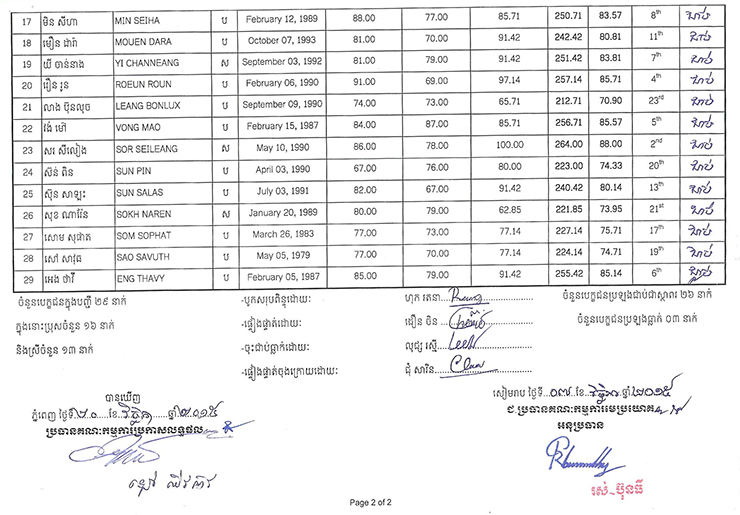 17 មិន សីហា MIN SEIHA ប February 12, 1989 88.00 77.00 85.71 250.71 83.57 8th ជាប់
18 មឿន ដារ៉ា MOUEN DARA ប October 07, 1993 81.00 70.00 91.42 242.42 80.81 11th ជាប់
19 យី ចាន់នាង YI CHANNEANG ស September 03, 1992 81.00 79.00 91.42 251.42 83.81 7th ជាប់
20 រឿន រួន ROEUN ROUN ប February 06, 1990 91.00 69.00 97.14 257.14 85.71 4th ជាប់
21 លាង ប៊ុនលួច LEANG BONLUX ប September 09, 1990 74.00 73.00 65.71 212.71 70.90 23rd ជាប់
22 វ៉ង់ ម៉ៅ VONG MAO ប February 15, 1987 84.00 87.00 85.71 256.71 85.57 5th ជាប់
23 សរ សីលៀង SOR SEILEANG ស May 10, 1990 86.00 78.00 100.00 264.00 88.00 2nd ជាប់
24 ស៊ន់ ពិន SUN PIN ប April 03, 1990 67.00 76.00 80.00 223.00 74.33 20th ជាប់
25 ស៊ុន សាឡះ SUN SALAS ប July 03, 1991 82.00 67.00 91.42 240.42 80.14 13th ជាប់
26 សុខ ណារ៉ែន SOKH NAREN ស January 20, 1989 80.00 79.00 62.85 221.85 73.95 21st ជាប់
27 សោម សុផាត SOM SOPHAT ប March 26, 1983 77.00 73.00 77.14 227.14 75.71 17th ជាប់
28 សៅ សាវុធ SAO SAVUTH ប May 05, 1979 77.00 70.00 77.14 224.14 74.71 19th ជាប់
29 អេង ថាវី ENG THAVY ប February 05, 1987 85.00 79.00 91.42 255.42 85.14 6th ជាប់
ចំនួនបេក្ខជនក្នុងបញ្ជី ២៩ នាក់ -បូកសរុបពិន្ទុដោយ: ហុក រតនា ចំនួនបេក្ខជនប្រឡងជាប់ជាស្ថាពរ ២៦ នាក់
ក្នុងនោះប្រុសចំនួន ១៦ នាក់ -ផ្ទៀងផ្ទាត់ដោយ: ជឿន ចិន ចំនួនបេក្ខជនប្រឡងធ្លាក់ ០៣ នាក់
និងស្រីចំនួន ១៣ នាក់ -ចុះជាប់ធ្លាក់ដោយ: លុជ្ស រស្មី
-ផ្ទៀងផ្ទាត់ចុងក្រោយដោយ: ជុំ សារិន
បានឃើញ
ភ្នំពេញ ថ្ងៃទី ២០ ខែ វិច្ឆិកា ឆ្នាំ ២០១៥ សៀមរាប ថ្ងៃទី ០៧ ខែ វិច្ឆិកា ឆ្នាំ ២០១៥
ប្រធានគណៈកម្មការប្រកាសលទ្ធផល ជ.ប្រធានគណៈកម្មការមេប្រយោគ
អនុប្រធាន
រស់-ប៊ុនធី
Page 2 of 2